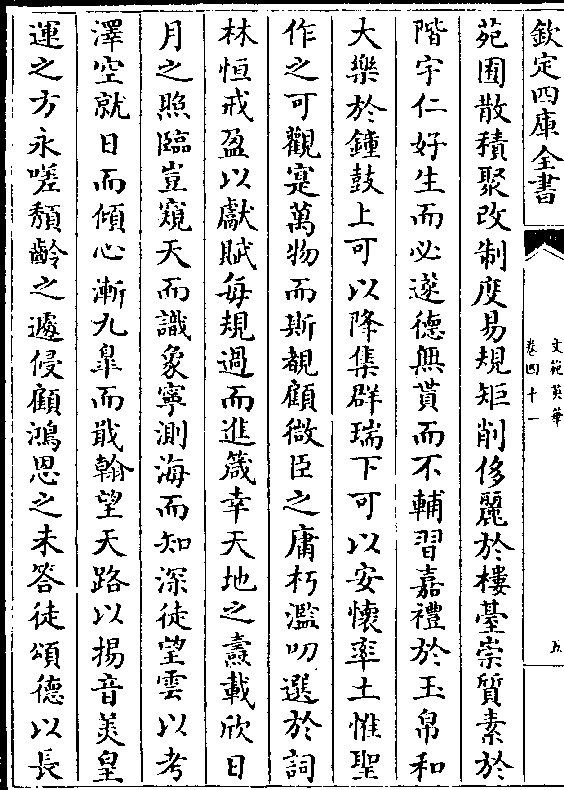 欽定四庫全書
文苑英華
卷四十一
五
苑囿散積聚改制度易規矩削侈麗於樓臺崇質素於
階宇仁好生而必遂德無貰而不輔習嘉禮於玉帛和
大樂於鍾鼓上可以降集群瑞下可以安懷率土惟聖
作之可觀寔萬物而斯覩顧微臣之庸朽濫叨選於詞
林恒戒盈以獻賦每規過而進箴幸天地之燾載欣日
月之照臨豈窺天而識象寧測海而知深徒望雲以考
澤空就日而傾心漸九臯而戢翰望天路以揚音羙皇
運之方永嗟頽齡之遽侵顧鴻恩之未答徒頌德以長